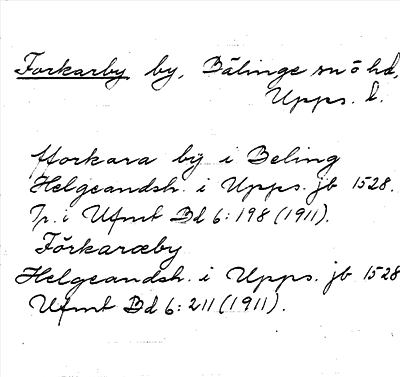 Forkarby by, Bälinge sn o hd,
Upps. l.
fforkara bÿ i Beling
Helgeandsh. i Upps. jb 1528.
Tr. i Ufmt Bd 6: 198 (1911).
Förkaræby
Helgeandsh. i Upps. jb 1528
Ufmt Bd 6: 211 (1911).